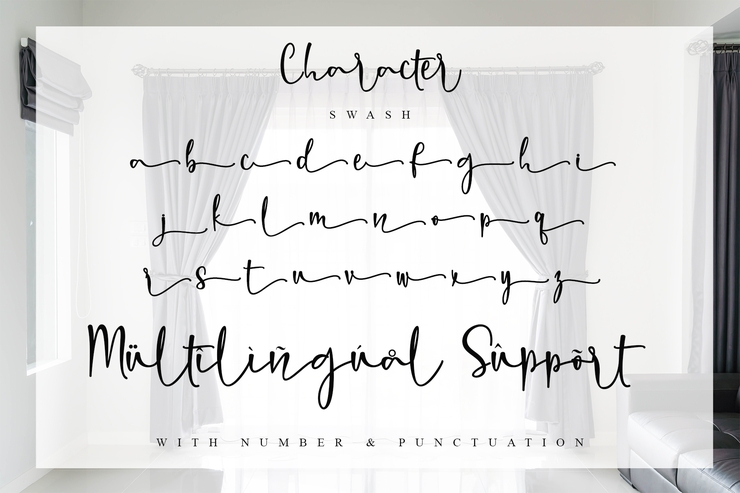 Character
SWASH
a b c d e f g h i
j k l m n o p q
r s t u v w x y z
Mültîlìñgúål Sûppõrt
WITH NUMBER & PUNCTUATION